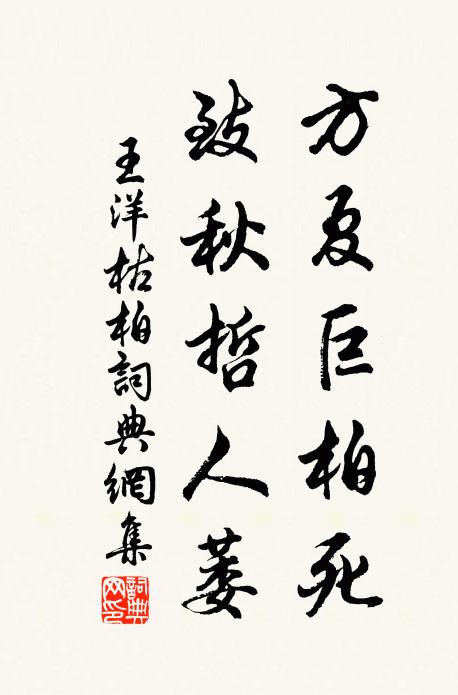 方夏巨柏死
致秋哲人萎
王洋枯柏詞典網集
詞典網印